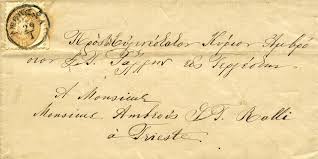 Εὐγενέστατον Κύριον Ἀμβρό
σιον Στ. Ράλλην εἰς Τεργέστην
A Monsieur
Monsieur Ambrois St. Ralli
à Trieste